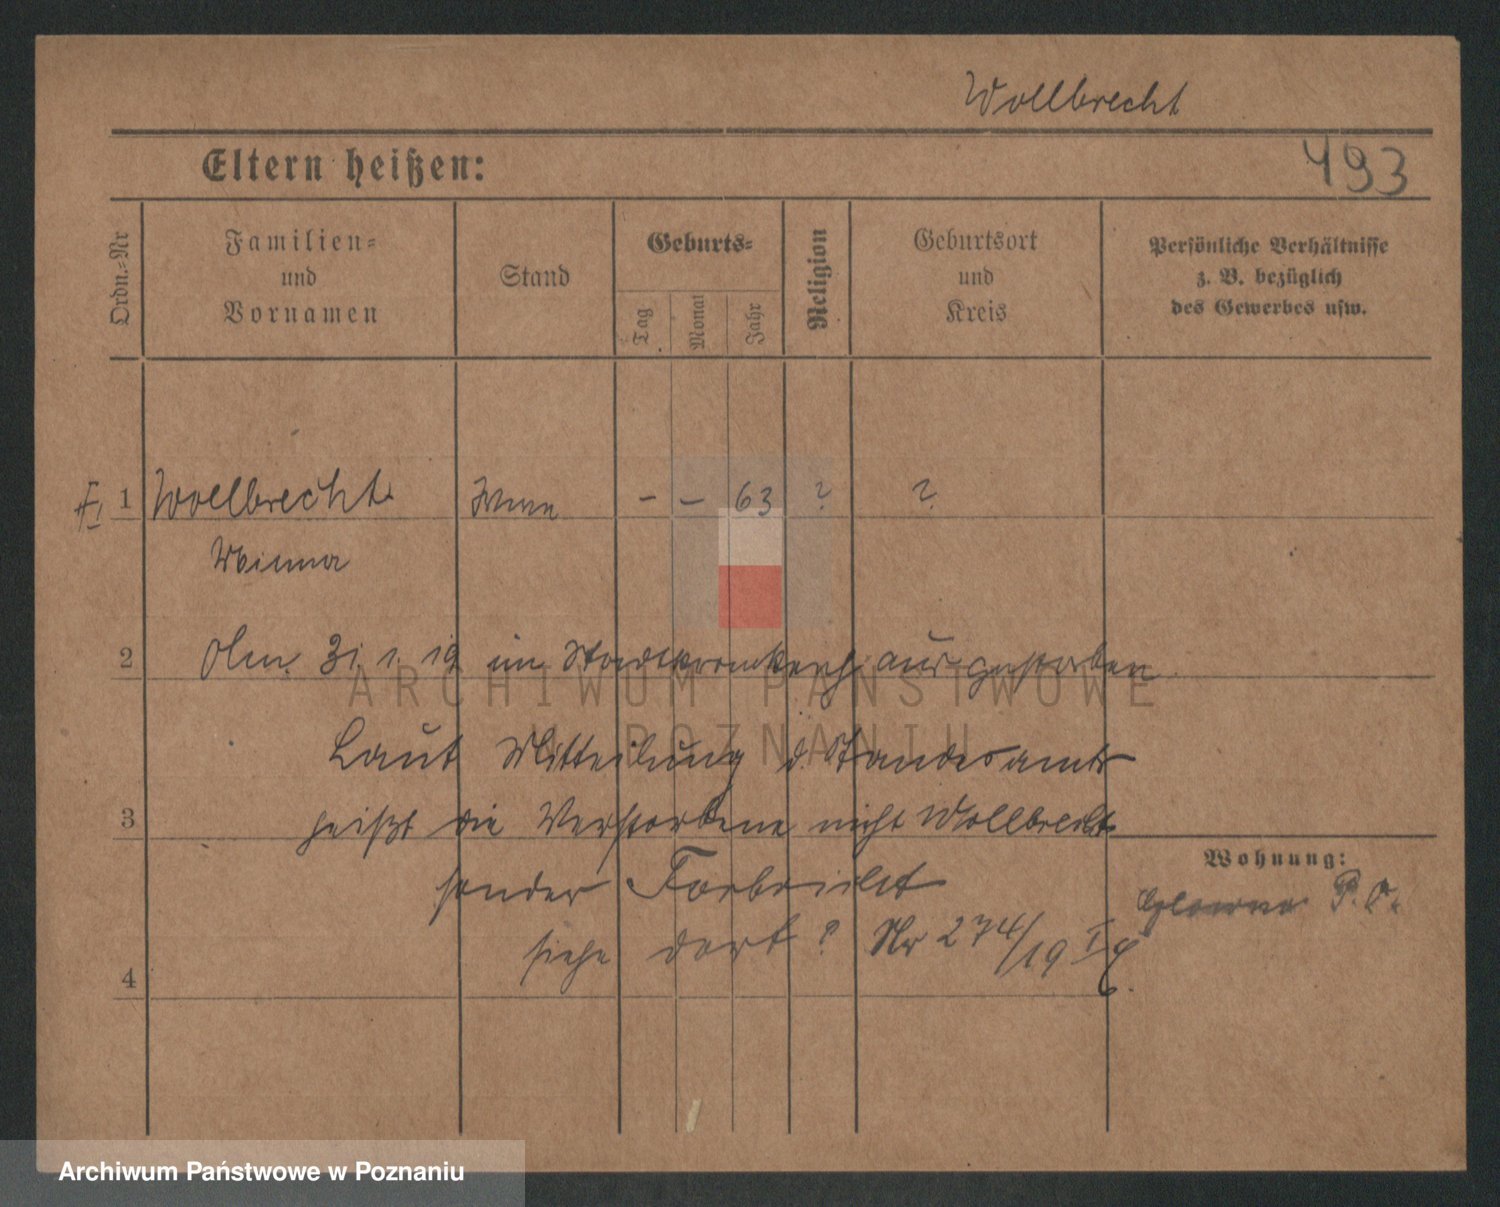 Wollbrecht
Eltern heißen:
493
Ordn.-Nr
Familien-
und
Vornamen
Stand
Geburts-
Tag
Monat
Jahr
Religion
Geburtsort
und
Kreis
Persönliche Verhältnisse
z. B. bezüglich
des Gewerbes usw.
1 Wollbrecht Wwe – – 63 ? ?
Minna
2
Am 31 1. 19 im Stadtkrankenh. aus gestorben
Laut Mitteilung d. Standesamts
3
heißt die Verstorbene nicht Wollbrecht
sonder Forbricht
siehe dort ? Nr 274/19 I
4
Wohnung:
P. O.
ARCHIWUM PAŃSTWOWE
W POZNANIU
Archiwum Państwowe w Poznaniu